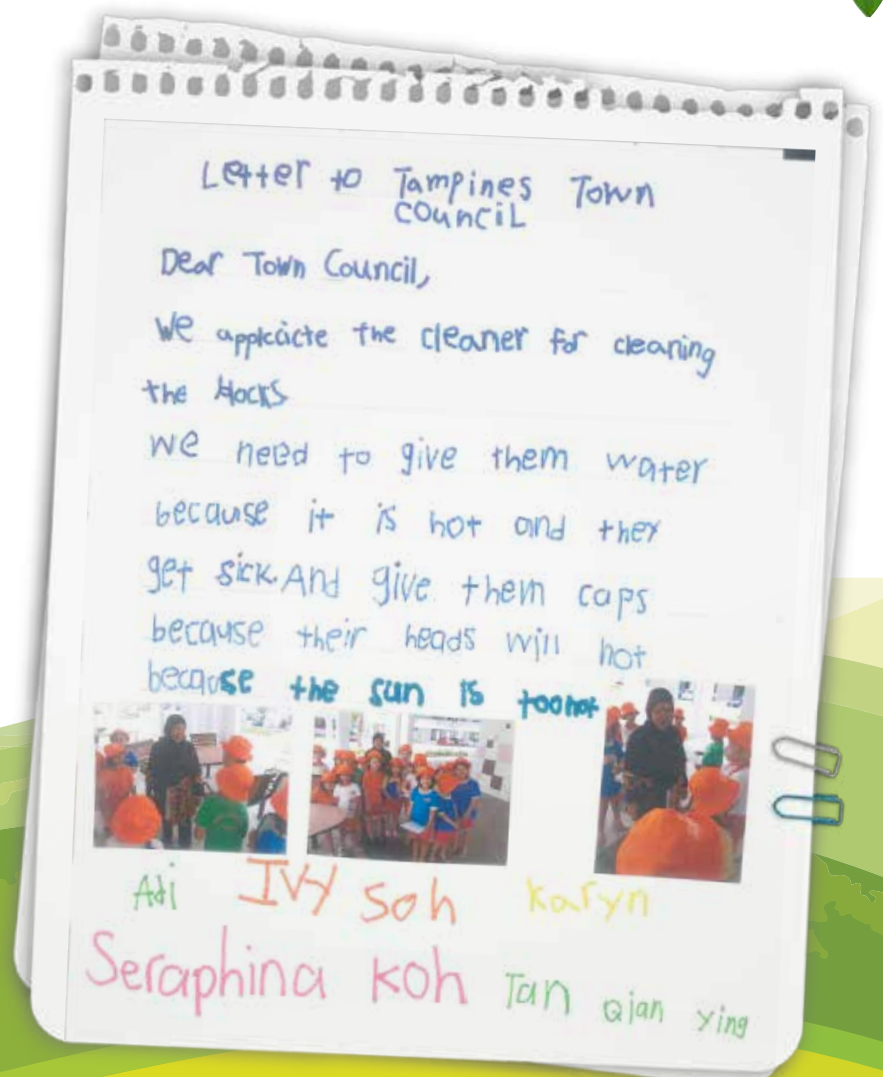 Letter to Tampines Town
Council
Dear Town Council,
We appicicte the cleaner for cleaning
the blocks
we need to give them water
because it is hot and they
get sick. And give them caps
because their heads will hot
because the sun is too hot
Adi IVY Soh Karyn
Seraphina Koh Tan Qian Ying